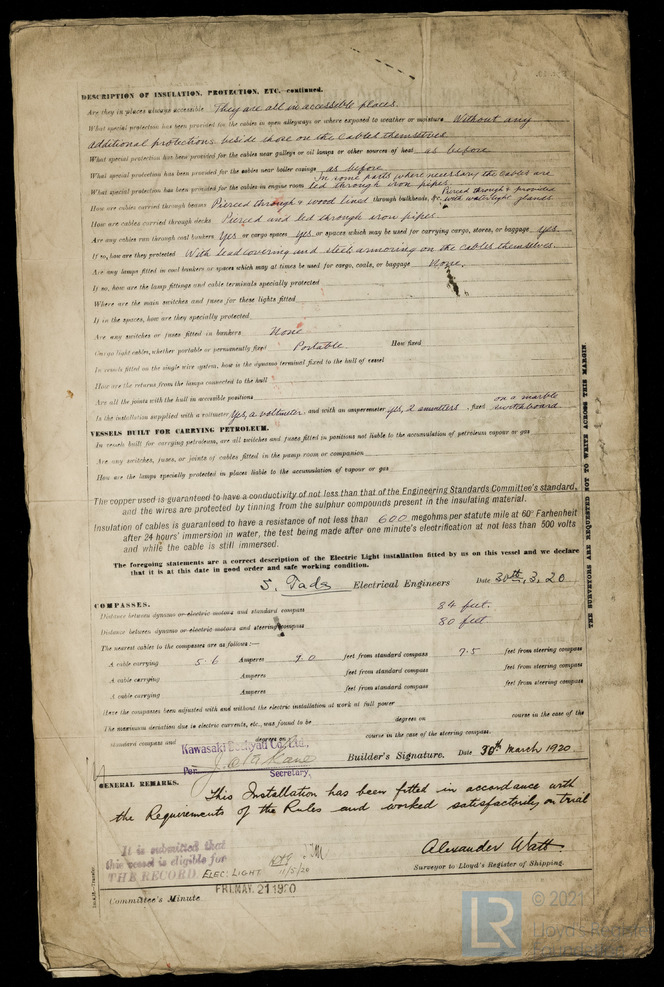 DESCRIPTION OF INSULATION, PROTECTION, ETC.—continued.
Are they in places always accessible They are all in accessible places.
What special protection has been provided for the cables in open alleyways or where exposed to weather or moisture Without any
additional protections beside those on the cables themselves
What special protection has been provided for the cables near galleys or oil lamps or other sources of heat as before
What special protection has been provided for the cables near boiler casings as before
What special protection has been provided for the cables in engine room In some parts where necessary the cables are led through iron pipes
How are cables carried through beams Pierced through & wood lined through bulkheads, &c. Pierced through & provided with watertight glands
How are cables carried through decks Pierced and led through iron pipes
Are any cables run through coal bunkers Yes or cargo spaces yes or spaces which may be used for carrying cargo, stores, or baggage yes
If so, how are they protected With lead covering and steel armoring on the cables themselves.
Are any lamps fitted in coal bunkers or spaces which may at times be used for cargo, coals, or baggage None.
If so, how are the lamp fittings and cable terminals specially protected
Where are the main switches and fuses for these lights fitted
If in the spaces, how are they specially protected
Are any switches or fuses fitted in bunkers None
Cargo light cables, whether portable or permanently fixed Portable How fixed
In vessels fitted on the single wire system, how is the dynamo terminal fixed to the hull of vessel
How are the returns from the lamps connected to the hull
Are all the joints with the hull in accessible positions
Is the installation supplied with a voltmeter Yes, a voltmeter. and with an amperemeter yes, 2 ammeters. fixed on a marble switchboard
VESSELS BUILT FOR CARRYING PETROLEUM.
In vessels built for carrying petroleum, are all switches and fuses fitted in positions not liable to the accumulation of petroleum vapour or gas
Are any switches, fuses, or joints of cables fitted in the pump room or companion
How are the lamps specially protected in places liable to the accumulation of vapour or gas
The copper used is guaranteed to have a conductivity of not less than that of the Engineering Standards Committee's standard,
and the wires are protected by tinning from the sulphur compounds present in the insulating material.
Insulation of cables is guaranteed to have a resistance of not less than 600 megohms per statute mile at 60° Farhenheit
after 24 hours' immersion in water, the test being made after one minute's electrification at not less than 500 volts
and while the cable is still immersed.
The foregoing statements are a correct description of the Electric Light installation fitted by us on this vessel and we declare
that it is at this date in good order and safe working condition.
S. Tada Electrical Engineers Date 30th, 3, 20
COMPASSES.
Distance between dynamo or electric motors and standard compass 84 feet.
Distance between dynamo or electric motors and steering compass 80 feet
The nearest cables to the compasses are as follows:—
A cable carrying 5.6 Amperes 9.0 feet from standard compass 7.5 feet from steering compass
A cable carrying Amperes feet from standard compass feet from steering compass
A cable carrying Amperes feet from standard compass feet from steering compass
Have the compasses been adjusted with and without the electric installation at work at full power
The maximum deviation due to electric currents, etc., was found to be degrees on course in the case of the
standard compass and degrees on course in the case of the steering compass.
Kawasaki Dockyard Co., Ltd.,
Per
Secretary,
Builder's Signature. Date 30th March 1920.
GENERAL REMARKS.
This Installation has been fitted in accordance with
the Requirements of the Rules and worked satisfactorily on trial
It is submitted that
this vessel is eligible for
THE RECORD. ELEC: LIGHT. 11/5/20
Alexander Watt
Surveyor to Lloyd's Register of Shipping.
Committee's Minute FRI. MAY. 21 1920
THE SURVEYORS ARE REQUESTED NOT TO WRITE ACROSS THIS MARGIN.
LR
© 2021
Lloyd's Register
Foundation